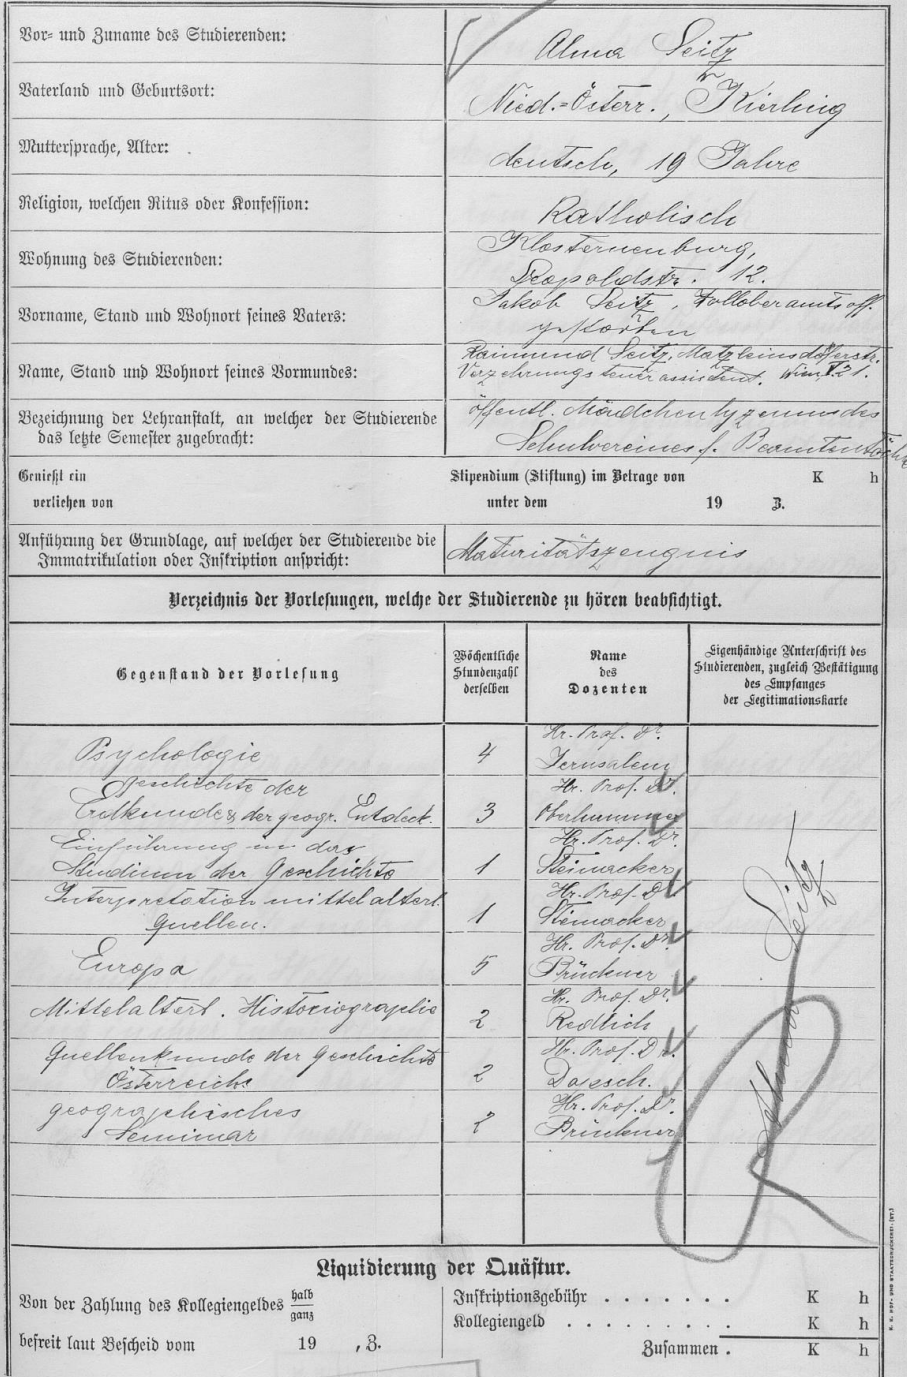 Vor- und Zuname des Studierenden: Alma Seitz
Vaterland und Geburtsort: Nied.-Österr., Kierling
Muttersprache, Alter: deutsch, 19 Jahre
Religion, welchen Ritus oder Konfession: Katholisch
Wohnung des Studierenden: Klosterneuburg,
Leopoldstr. 12.
Vorname, Stand und Wohnort seines Vaters: Jakob Seitz, Zolloberamtsoff.
gestorben
Name, Stand und Wohnort seines Vormundes: Raimund Seitz, Matzleinsdöferstr.
Verzehrungssteuerassistent. Wien,
Bezeichnung der Lehranstalt, an welcher der Studierende das letzte Semester zugebracht: öffentl. Mädchenlyzeum des
Schulvereines f. Beamtentöchter
Genießt ein Stipendium (Stiftung) im Betrage von K h
verliehen von unter dem 19 Z.
Anführung der Grundlage, auf welcher der Studierende die
Immatrikulation oder Inskription anspricht: Maturitätszeugnis
Verzeichnis der Vorlesungen, welche der Studierende zu hören beabsichtigt.
Gegenstand der Vorlesung
Wöchentliche
Stundenzahl
derselben
Name
des
Dozenten
Eigenhändige Unterschrift des
Studierenden, zugleich Bestätigung
des Empfanges
der Legitimationskarte
Psychologie 4 Hr. Prof. Dr.
Jerusalem
Geschichte der
Erdkunde & der geogr. Entdeck. 3 Hr. Prof. Dr.
Oberhummer
Einführung in das
Studium der Geschichte 1 Hr. Prof. Dr.
Steinacker
Interpretation mittelalterl.
Quellen. 1 Hr. Prof. Dr.
Steinacker
Europa 5 Hr. Prof. Dr.
Brückner
Mittelalterl. Historiographie 2 Hr. Prof. Dr.
Redlich
Quellenkunde der Geschichte
Österreichs 2 Hr. Prof. Dr.
Dopsch.
geographisches
Seminar 2 Hr. Prof. Dr.
Brückner
Alma Seitz
Liquidierung der Quästur.
Von der Zahlung des Kollegiengeldes halb
ganz
befreit laut Bescheid vom 19 , Z.
Inskriptionsgebühr . . . . . . . K h
Kollegiengeld . . . . . . . . . K h
Zusammen . K h
K. K. HOF- UND STAATSDRUCKEREI. (ST.)